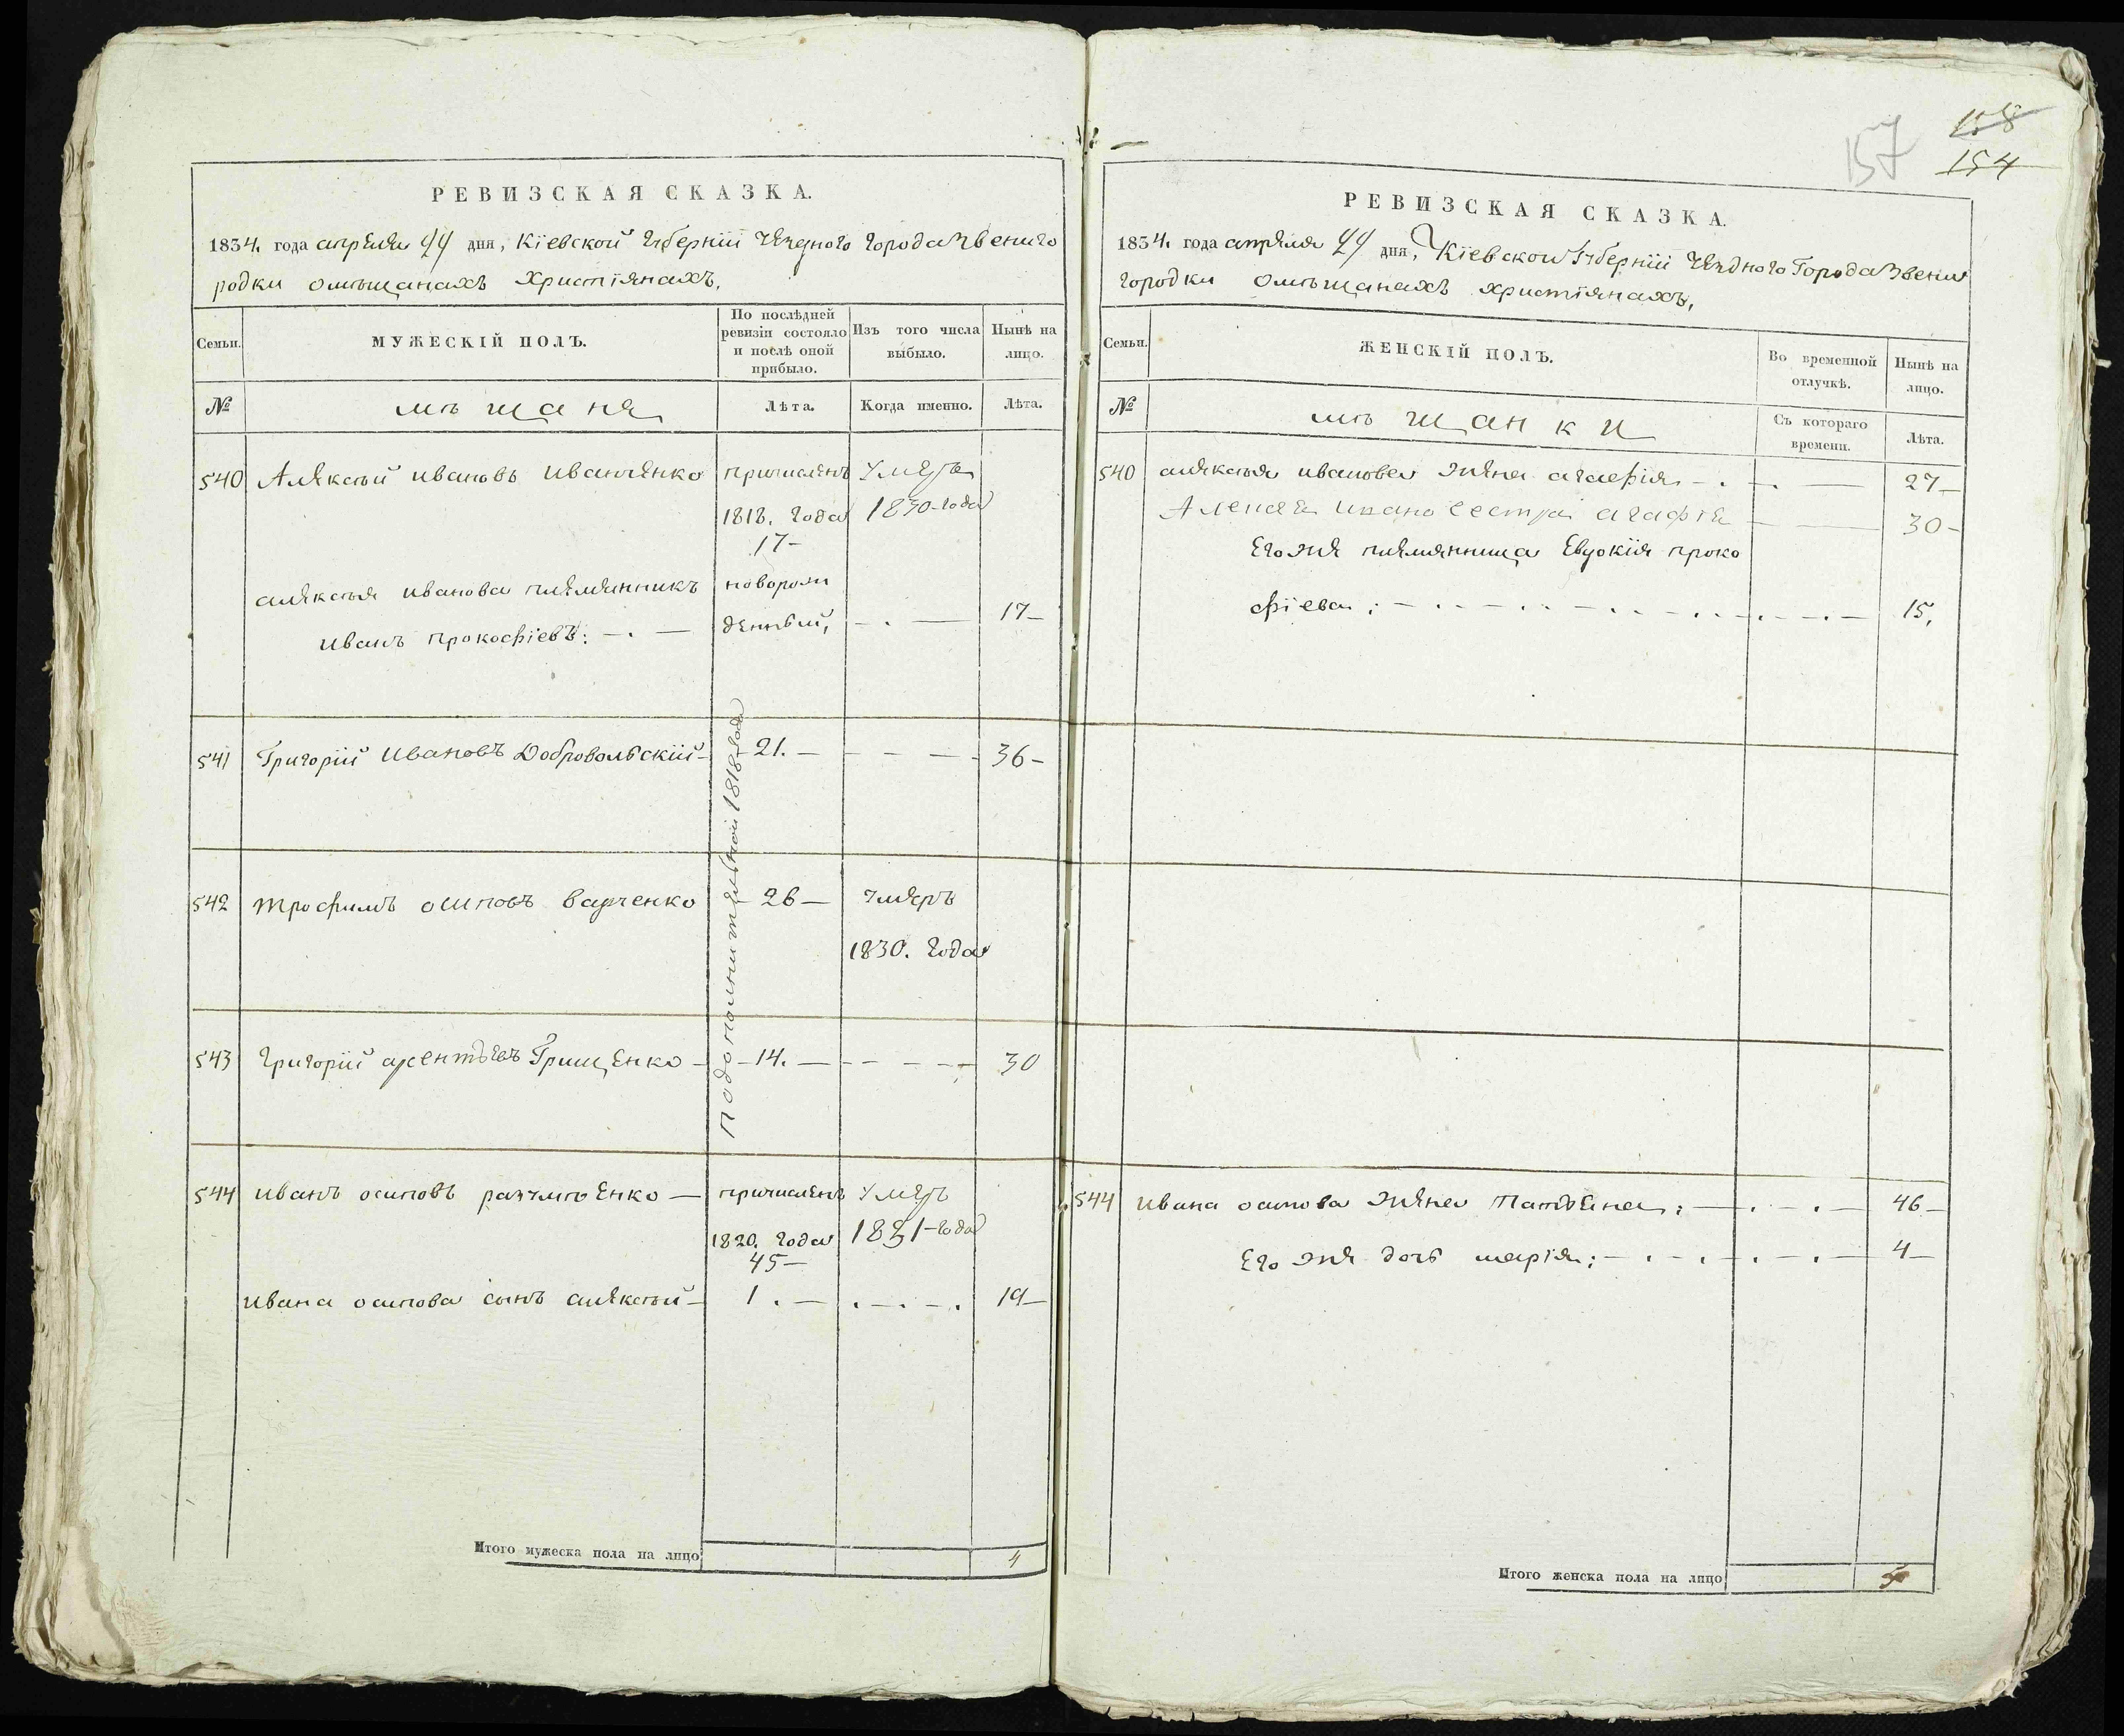 158
157
154
РЕВИЗСКАЯ СКАЗКА.
1834. года апреля 24 дня, Кіевской губерніи уезднаго города звениго
родки омѣщанахъ христіянахъ,
Семьи.
МУЖЕСКІЙ ПОЛЪ.
По послѣдней
ревизіи состояло
и послѣ оной
прибыло.
Изъ того числа
выбыло.
Нынѣ на
лицо.
№
мѣщане
Лѣта.
Когда именно.
Лѣта.
540 Алексѣй ивановъ иванченко причисленъ умеръ
1818. года 1830 года
17 —
алексѣя иванова племянникъ новорож
иванъ прокофіевъ: — . — денный, — . — 17 —
Подополнительной 1818 года
541 Григорій Ивановъ Добровольскій — 21. — — — — 36 —
542 трофимъ осиповъ варченко — 26 — умеръ
1830. года
543 григорій арсентьевъ Грищенко — 14. — — — — 30
544 иванъ осиповъ разумъенко — причисленъ умеръ
1820. года 1831 года
45 —
ивана осипова сынъ алексѣй — 1 . — . — . — . 19 —
Итого мужеска пола на лицо 4
РЕВИЗСКАЯ СКАЗКА.
1834. года апреля 24 дня, Кіевской губерніи уезднаго города звени
городки омѣщанахъ христіянахъ,
Семьи.
ЖЕНСКІЙ ПОЛЪ.
Во временной
отлучкѣ.
Нынѣ на
лицо.
№
мѣщанки
Съ котораго
времени.
Лѣта.
540 алексѣя иванова жена агафія — . — . — 27 —
сестра агафія — — 30 —
Его же племянница Евдокія проко
фіева: — . — . — . — 15,
544 ивана осипова жена Татьяна: — . — . — 46 —
Его же дочь марія: — . — . — . — 4 —
Итого женска пола на лицо 5